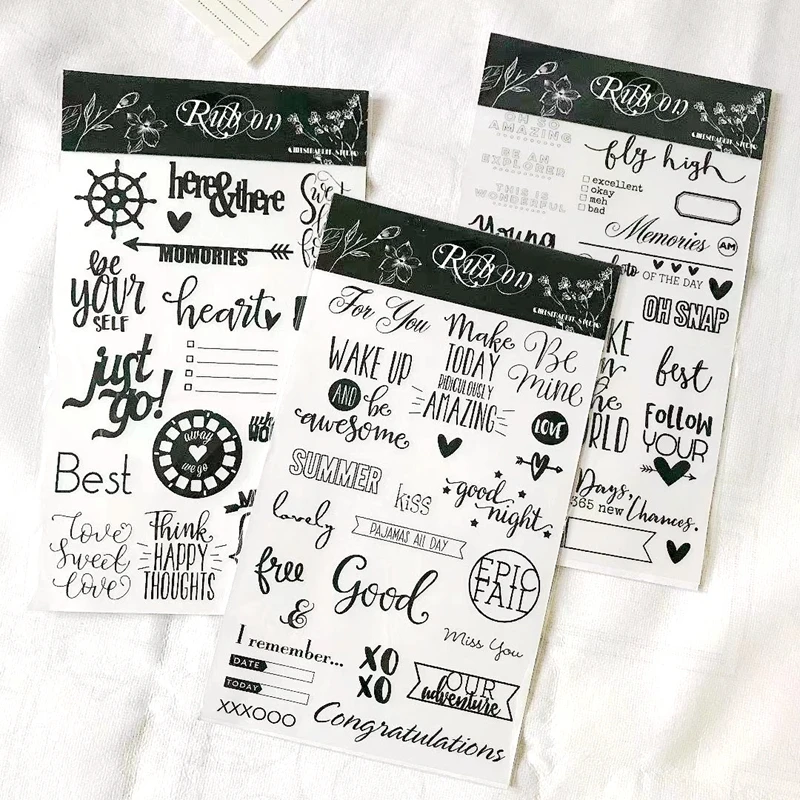 Rub on
here&there
MOMORIES
be
YOUR
SELF
heart
just
go!
away
we go
Best
Love
Sweet
Love
Think
HAPPY
THOUGHTS
Rub on
For You
Make
TODAY
RIDICULOUSLY
AMAZING
Be
Mine
WAKE UP
AND be
awesome
LOVE
SUMMER
kiss
good
night
lovely
PAJAMAS ALL DAY
free
&
Good
EPIC
FAIL
Miss You
I remember...
DATE
TODAY
XO
XO
OUR
adventure
XXXOOO
Congratulations
Rub on
OH SO
AMAZING
BE AN
EXPLORER
THIS IS
WONDERFUL
Young
fly high
excellent
okay
meh
bad
Memories
AM
OF THE DAY
OH SNAP
best
FOLLOW
YOUR
Days,
365 new Chances.